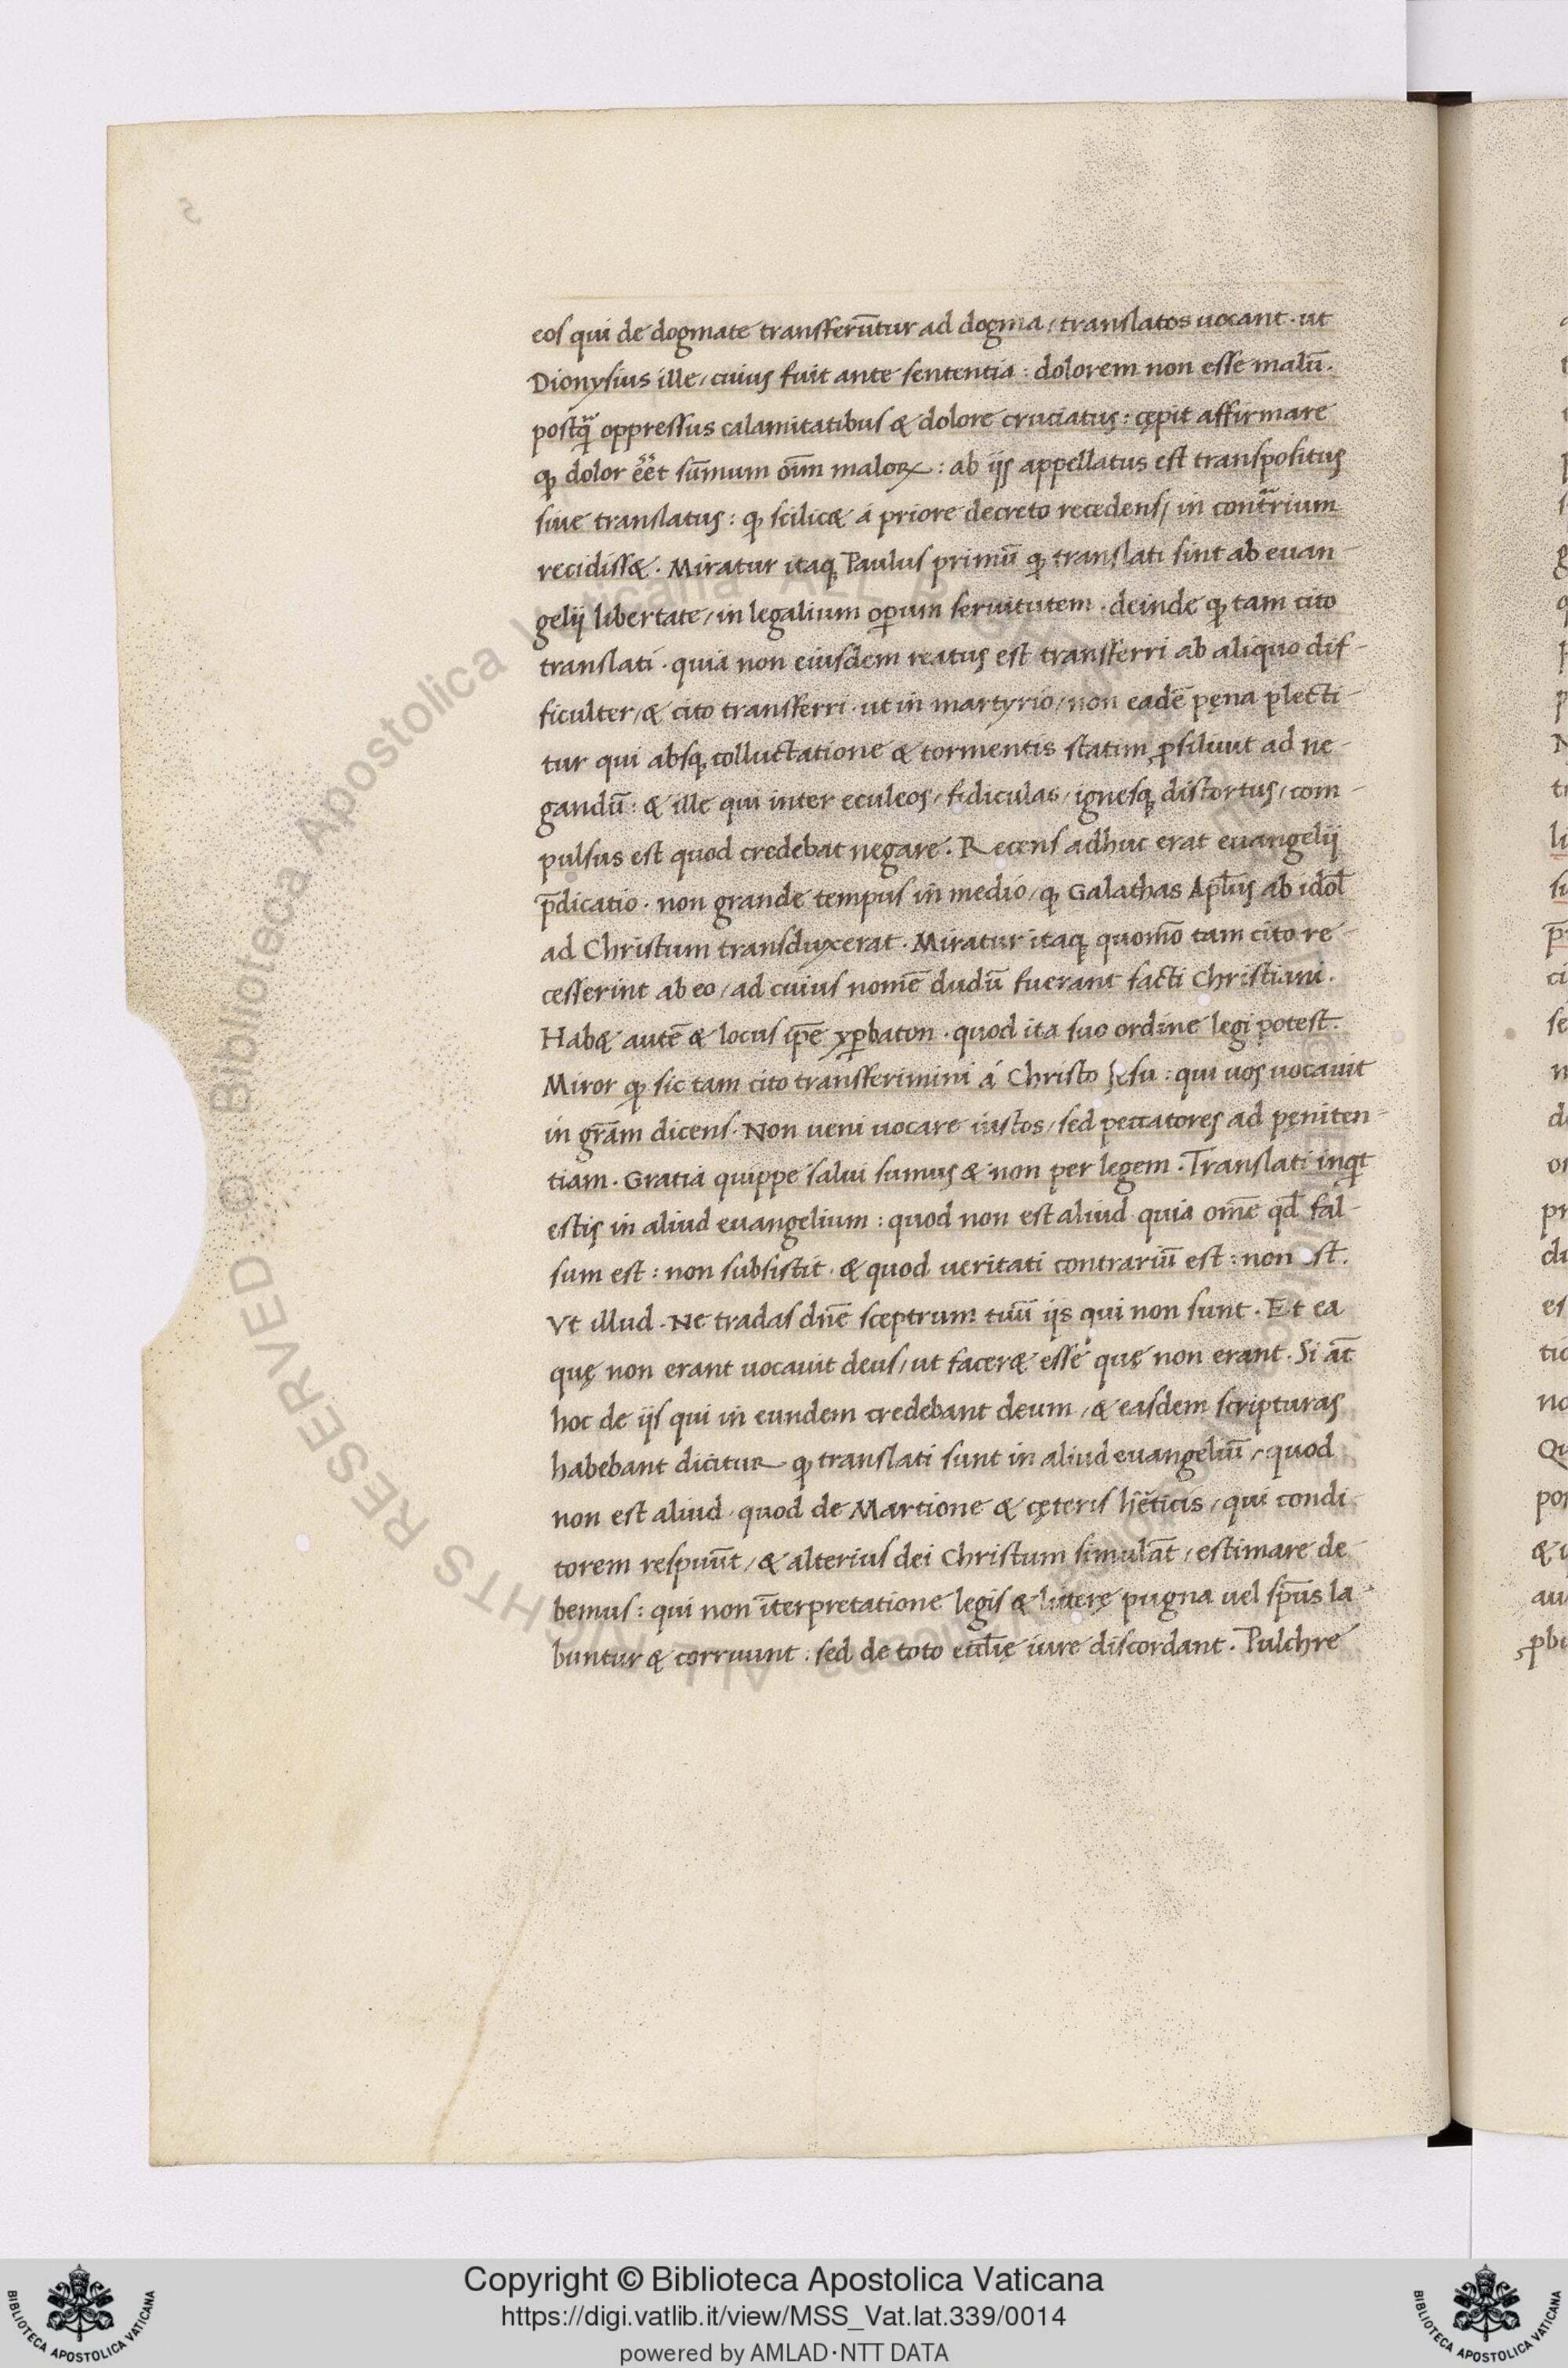 eos qui de dogmate transferūtur ad dogma / translatos uocant · ut
Dionysius ille / cuius fuit ante sententia : dolorem non esse malū .
postq̄ oppressus calamitatibus & dolore cruciatus : cępit affirmare
ꝙ dolor ēēt sūmum oīm maloꝝ : ab ijs appellatus est transpositus
siue translatus : ꝙ scilic& á priore decreto recedens / in contrarium
recidiss& . Miratur itaqꝫ Paulus primū ꝙ translati sint ab euan-
gelij libertate / in legalium oꝑum seruitutem · deinde ꝙ tam cito
translati · quia non eiusdem reatus est transferri ab aliquo dif-
ficulter / & cito transferri · ut in martyrio / non eadē pęna plecti-
tur qui absqꝫ colluctatione & tormentis statim ꝓsiluit ad ne-
gandū : & ille qui inter eculeos / fidiculas / ignesqꝫ distortus / com-
pulsus est quod credebat negare . Recens adhuc erat euangelij
p̄dicatio · non grande tempus in medio / ꝙ Galathas Apłus ab idoł
ad Christum transduxerat · Miratur itaqꝫ quomō tam cito re-
cesserint ab eo / ad cuius nomē dudū fuerant facti Christiani .
Hab& autē & locus ip̄e yꝑbaton · quod ita suo ordine legi potest .
Miror ꝙ sic tam cito transferimini á Christo Iesu : qui uos uocauit
in grām dicens · Non ueni uocare iustos / sed peccatores ad pęniten-
tiam . Gratia quippe salui sumus & non per legem . Translati inqt
estis in aliud euangelium : quod non est aliud · quia om̄e qd̄ fal-
sum est : non subsistit · & quod ueritati contrariū est : non est .
Vt illud . Ne tradas dn̄e sceptrum tuū ijs qui non sunt . Et ea
quę non erant uocauit deus / ut facer& esse quę non erant . Si āt
hoc de ijs qui in eundem credebant deum / & easdem scripturas
habebant dicitur ꝙ translati sunt in aliud euangeliū / quod
non est aliud · quod de Martione & cęteris hēticis / qui condi-
torem respuūt / & alterius dei Christum simulāt / estimare de-
bemus : qui non īterpretatione legis & litterę pugna uel sp̄us la-
buntur & corruunt : sed de toto eccłię iure discordant . Pulchre
Copyright © Biblioteca Apostolica Vaticana
https://digi.vatlib.it/view/MSS_Vat.lat.339/0014
powered by AMLAD·NTT DATA